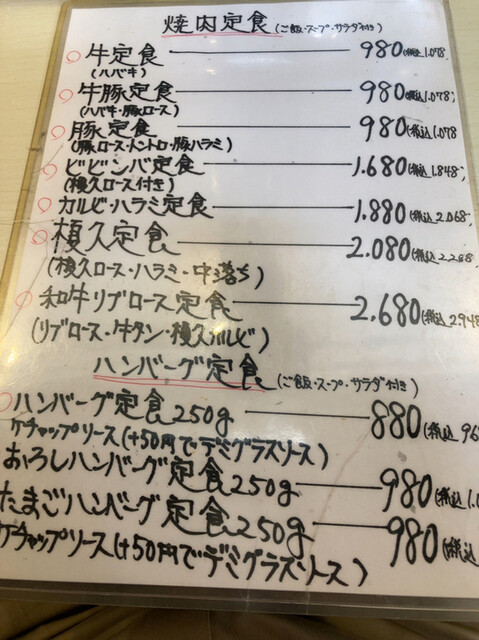 焼肉定食(ご飯・スープ・サラダ付き)
牛定食 980(税込1.078)
(ハバキ)
牛豚定食 980(税込1.078)
(ハバキ・豚ロース)
豚定食 980(税込1.078
(豚ロース・トントロ・豚ハラミ)
ビビンバ定食 1.680(税込1.848)
(榎久ロース付き)
カルビ・ハラミ定食 1.880(税込2.068)
榎久定食 2.080(税込2.288)
(榎久ロース・ハラミ・中落ち)
和牛リブロース定食 2.680(税込2.948
(リブロース・牛タン・榎久カルビ)
ハンバーグ定食(ご飯・スープ・サラダ付き)
ハンバーグ定食250g 880(税込96
ケチャップソース(+50円でデミグラスソース)
おろしハンバーグ定食250g 980(税込1.0
たまごハンバーグ定食250g 980(税込
ケチャップソース(+50円でデミグラスソース)